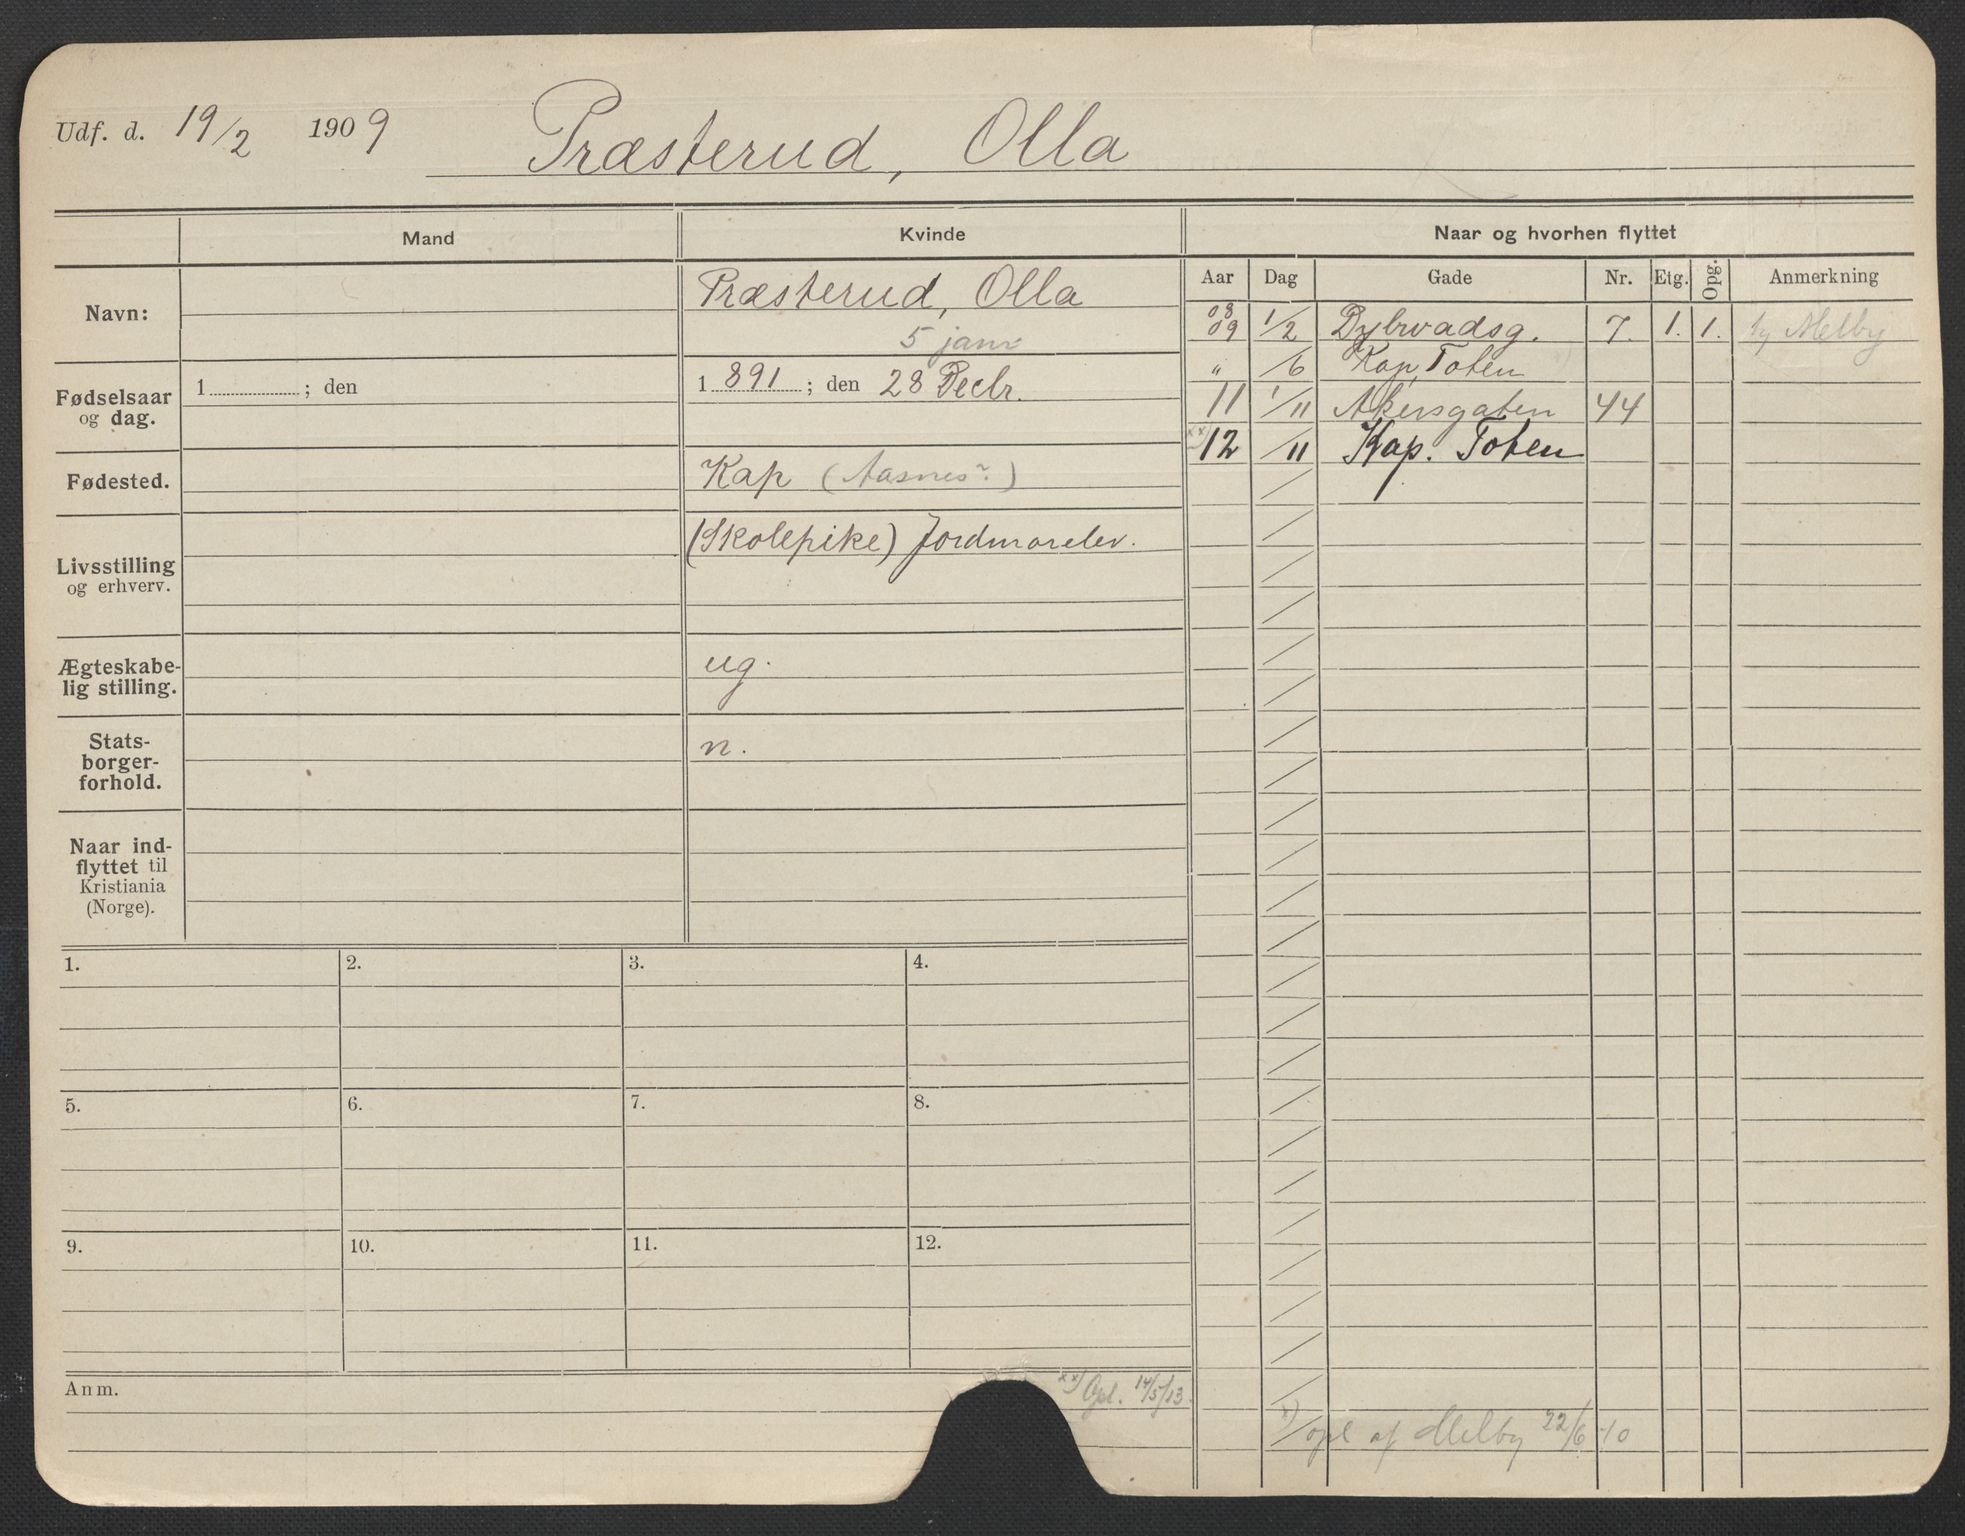 Udf. d. 19/2 1909 Præsterud, Olla
Mand Kvinde Naar og hvorhen flyttet
Aar Dag Gade Nr. Etg. Opg. Anmerkning
Navn: Præsterud, Olla
5 janr
Fødselsaar og dag. 1 ; den 1 891 ; den 28 Decbr.
Fødested. Kap (Aasnes?)
Livsstilling og erhverv. (Skolepike) Jordmorelev.
Ægteskabe-
lig stilling. ug.
Stats-
borger-
forhold. n.
Naar ind-
flyttet til
Kristiania
(Norge).
08
09 1/2 Dybwadsg. 7. 1. 1. Melby
" /6 Kap, Toten
11 1/11 Akersgaten 44
xx) 12 /11 Kap. Toten
1. 2. 3. 4.
5. 6. 7. 8.
9. 10. 11. 12.
Anm.
xx) Opl. 14/5/13.
x) opl af Melby 22/6 10